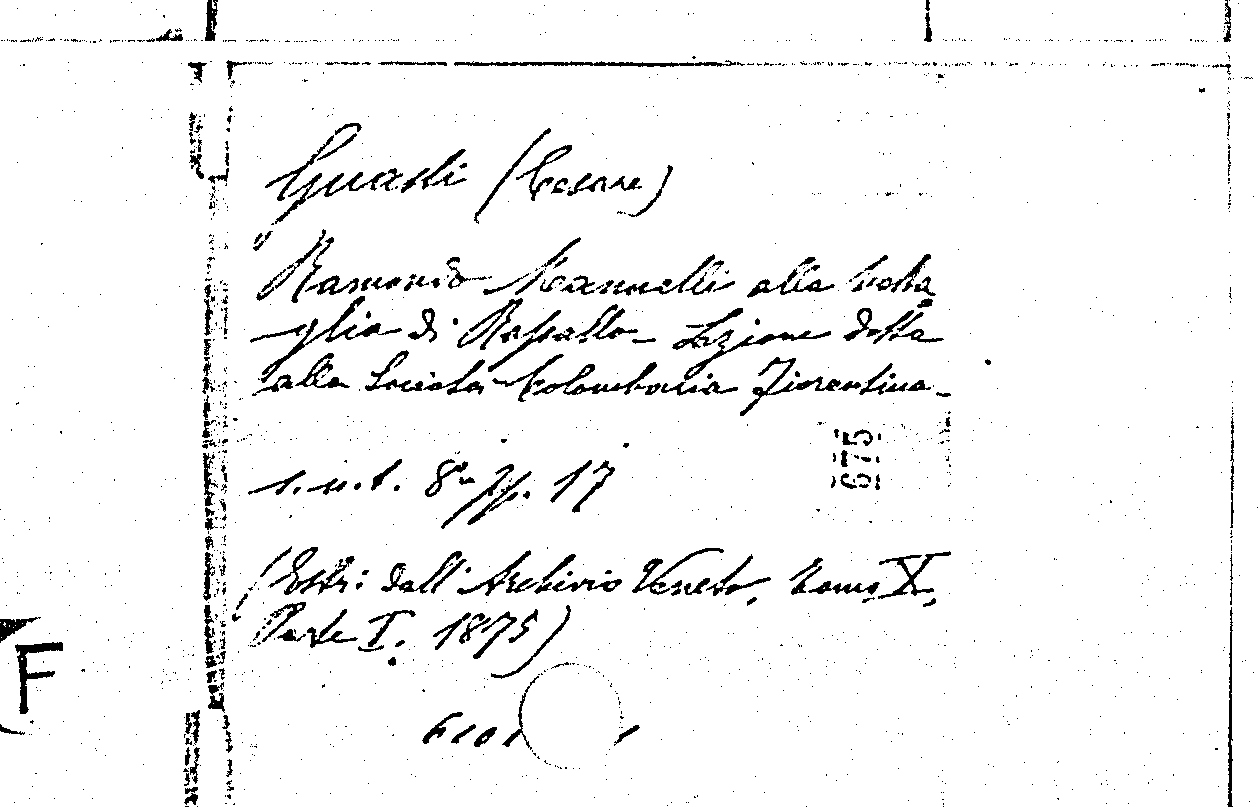 Guasti (Cesare)
"Ramondo Mannelli alla batta
glia di Rapallo - Lezione detta
alla Società Colombaria Fiorentina -
675
s.n.t. 8° pp. 17
(Estr: dall'Archivio Veneto, Tomo X,
Parte I. 1875)
F